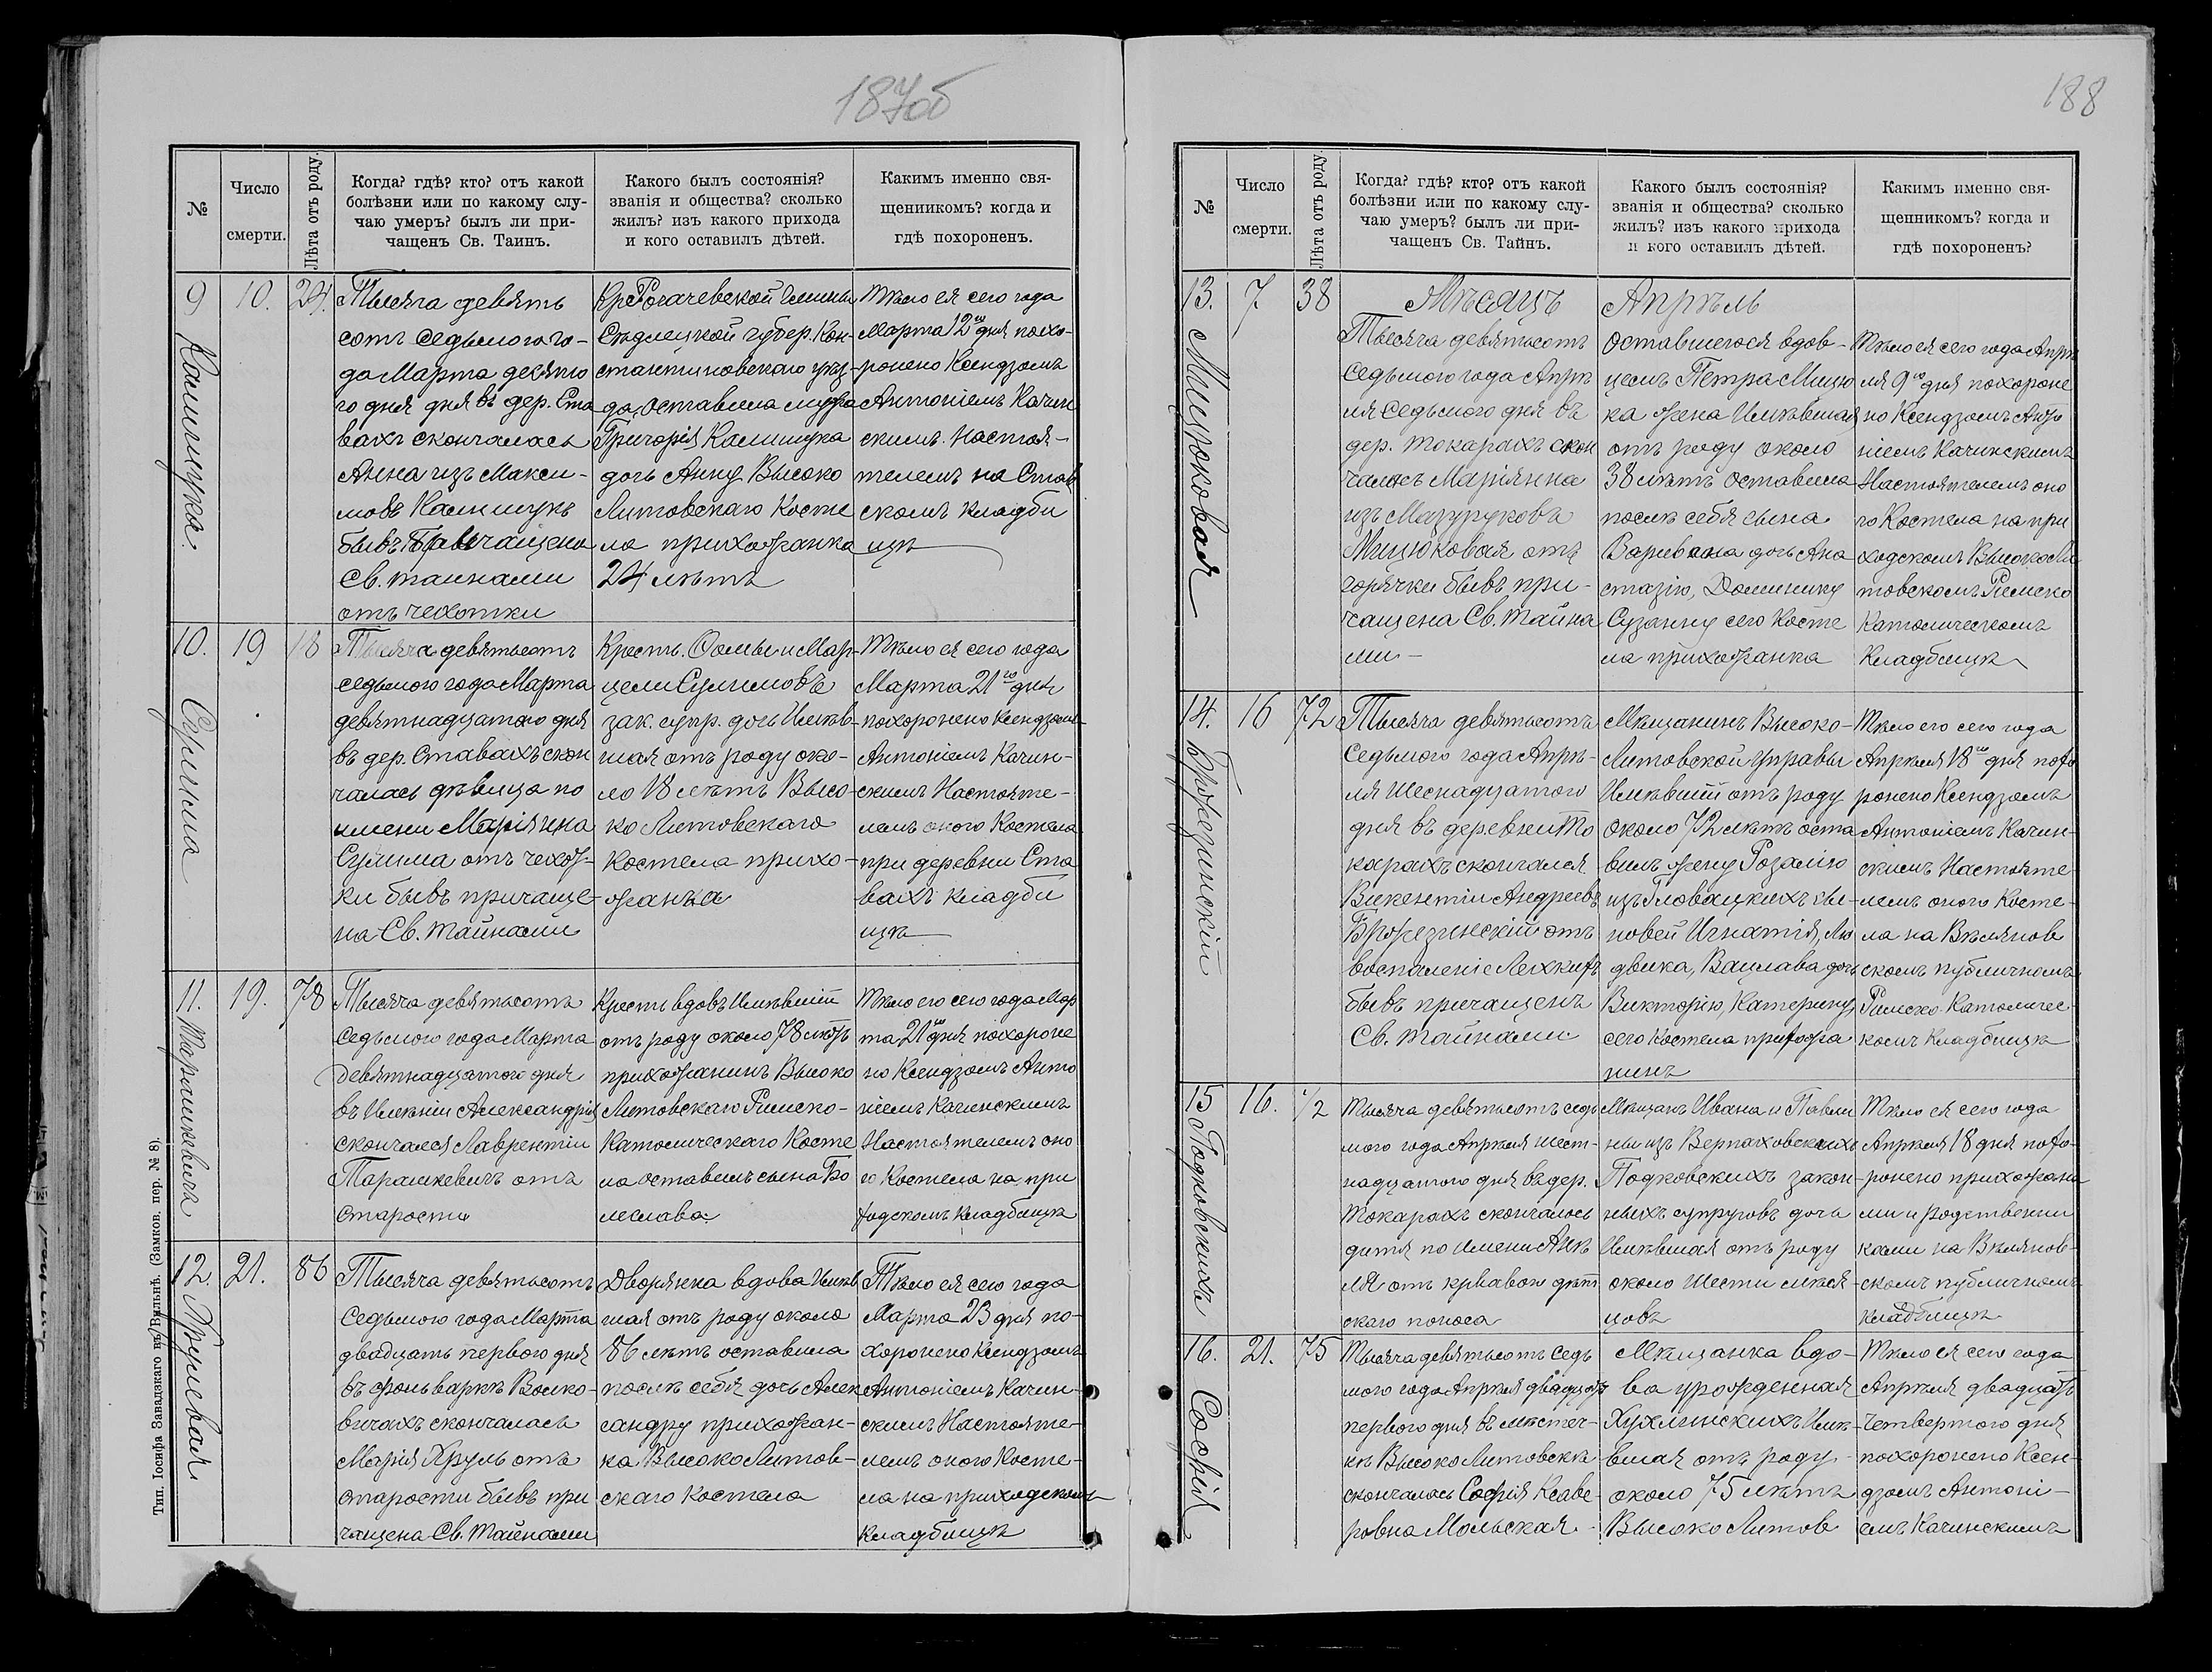 187об
№
Число
смерти.
Лѣта отъ роду.
Когда? гдѣ? кто? отъ какой
болѣзни или по какому слу-
чаю умеръ? былъ ли при-
чащенъ Св. Таинъ.
Какого былъ состоянія?
званія и общества? сколько
жилъ? изъ какого прихода
и кого оставилъ дѣтей.
Какимъ именно свя-
щенникомъ? когда и
гдѣ похороненъ.
9
Калишука
10.
24.
Тысяча девять
сотъ седьмого го-
да Марта десято
го дня дня въ дер. Ста
вахъ скончалась
Анна изъ Макси-
мовъ Калишукъ
бывъ причащена
Св. таинами
отъ чехотки
Кр. Рогачевской Гмины
Сѣдлецкой губер. Кон-
стантиновскаго уѣз-
да, оставила мужа
Григорія Калишука
дочь Анну Высоко
Литовскаго Косте
ла прихожанка
24 лѣтъ
Тѣло ея сего года
Марта 12го дня похо-
ронено Ксендзомъ
Антоніемъ Качин
скимъ Настоя-
телемъ на Став
скомъ кладби
щѣ
10.
Сулима
19
18
Тысяча девятьсотъ
седьмого года Марта
девятнадцатого дня
въ дер. Ставахъ скон
чалась дѣвица по
имени Маріянна
Сулима отъ чехот-
ки бывъ причаще-
на Св. Тайнами
Крестъ. Ѳомы и Мар-
цели Сулимовъ
зак. супр. дочь Имѣв-
шая отъ роду око-
ло 18 лѣтъ Высо-
ко Литовскаго
Костела прихо-
жанка
Тѣло ея сего года
Марта 21го дня
похоронено Ксендзомъ
Антоніемъ Качин-
скимъ Настояте-
лемъ оного Костела
при деревни Ста
вахъ кладби
щѣ
11.
Тарашкевича
19.
78
Тысяча девятьсотъ
седьмого года Марта
девятнадцатого дня
въ Имѣніи Александрія
скончался Лаврентіи
Тарашкевичъ отъ
старости
Крестъ вдовъ Имѣвшій
отъ роду около 78 лѣтъ
прихожанинъ Высоко
Литовскаго Римско-
Католическаго Косте
ла оставилъ сына Бо
леслава
Тѣло его сего года Мар
та 21го дня похороне
но Ксендзомъ Анто
ніемъ Качинскимъ
Настоятелемъ оно
го Костела на при
ходскомъ кладбищѣ
12.
Хрулевая
21.
86
Тысяча девятьсотъ
седьмого года Марта
двадцать первого дня
въ фольваркѣ Волко-
вичахъ скончалась
Марія Хруль отъ
старости бывъ при
чащена Св. Тайнами
Дворянка вдова Имѣв
шая отъ роду около
86 лѣтъ оставила
послѣ себя дочь Алек
сандру прихожан-
ка Высоко Литов-
скаго Костела
Тѣло ея сего года
Марта 23 дня по-
хоронено Ксендзомъ
Антоніемъ Качин-
скимъ Настояте-
лемъ оного Косте-
ла на приходскомъ
кладбищѣ
Тип. Іосифа Завадзкаго въ Вильнѣ. (Замков. пер. № 8).
188
№
Число
смерти.
Лѣта отъ роду.
Когда? гдѣ? кто? отъ какой
болѣзни или по какому слу-
чаю умеръ? былъ ли при-
чащенъ Св. Тайнъ.
Какого былъ состоянія?
званія и общества? сколько
жилъ? изъ какого прихода
и кого оставилъ дѣтей.
Какимъ именно свя-
щенникомъ? когда и
гдѣ похороненъ?
13.
Мицюковая
7
38
Мѣсяцъ Апрѣль
Тысяча девятьсотъ
седьмого года Апрѣ
ля седьмого дня въ
дер. Токарахъ скон
чалась Маріянна
изъ Мазуруковъ
Мицюковая отъ
горячки бывъ при-
чащена Св. Тайна
ми
Оставшегося вдов-
цемъ Петра Мицю
ка жена Имѣвшая
отъ роду около
38 лѣтъ оставила
послѣ себя сына
дочь Ана
стазію, Доминику
Сузанну сего Косте
ла прихожанка
Тѣло ея сего года Апрѣ
ля 9го дня похороне
но Ксендзомъ Анто
ніемъ Качинскимъ
Настоятелемъ оно
го Костела на при
ходскомъ Высоко Ли
товскомъ Римско
Католическомъ
Кладбищѣ
14.
Бржезинскій
16
72
Тысяча девятьсотъ
седьмого года Апрѣ-
ля Шеснадцатого
дня въ деревни То
карахъ скончался
Викентіи Андреевъ
Бржезинскій отъ
воспаленіе Легкихъ
бывъ причащенъ
Св. Тайнами
Мѣщанинъ Высоко-
Литовской Управы
Имѣвшій отъ роду
около 72 лѣтъ оста
вилъ жену Розалію
изъ Гловацкихъ сы-
новей Игнатія, Лю
двика, Вацлава дочь
Викторію, Катерину,
сего Костела прихожа
нинъ
Тѣло его сего года
Апрѣля 18го дня похо
ронено Ксендзомъ
Антоніемъ Качин-
скимъ Настояте
лемъ оного Косте-
ла на Вѣлянов
скомъ публичномъ
Римско Католичес-
комъ Кладбищѣ
15
Подковскихъ
16.
1/2
Тысяча девятьсотъ седь
мого года Апрѣля шест-
надцатого дня въ дер.
Токарахъ скончалось
дитя по имени Анѣ
ля отъ крвавой дѣт
скаго поноса
Мѣщанъ Ивана и Павли
ны изъ Верпаховскихъ
Подковскихъ закон-
ныхъ супруговъ дочь
Имѣвшая отъ роду
около Шести мѣся-
цовъ
Тѣло ея сего года
Апрѣля 18 дня похо-
ронено прихожана
ми и родственни
ками на Вѣлянов-
скомъ публичномъ
кладбищѣ
16.
Софія
21.
75
Тысяча девятьсотъ седь
мого года Апрѣля двадцать
первого дня въ мѣстеч-
кѣ Высоко Литовскѣ
скончалась Софія Ксаве-
ровна Мольская
Мѣщанка вдо-
ва урожденная
Хухлинскихъ Имѣ-
вшая отъ роду
около 75 лѣтъ
Высоко Литов
Тѣло ея сего года
Апрѣля двадцать
четвертого дня
похоронено Ксен-
дзомъ Антоні-
емъ Качинскимъ